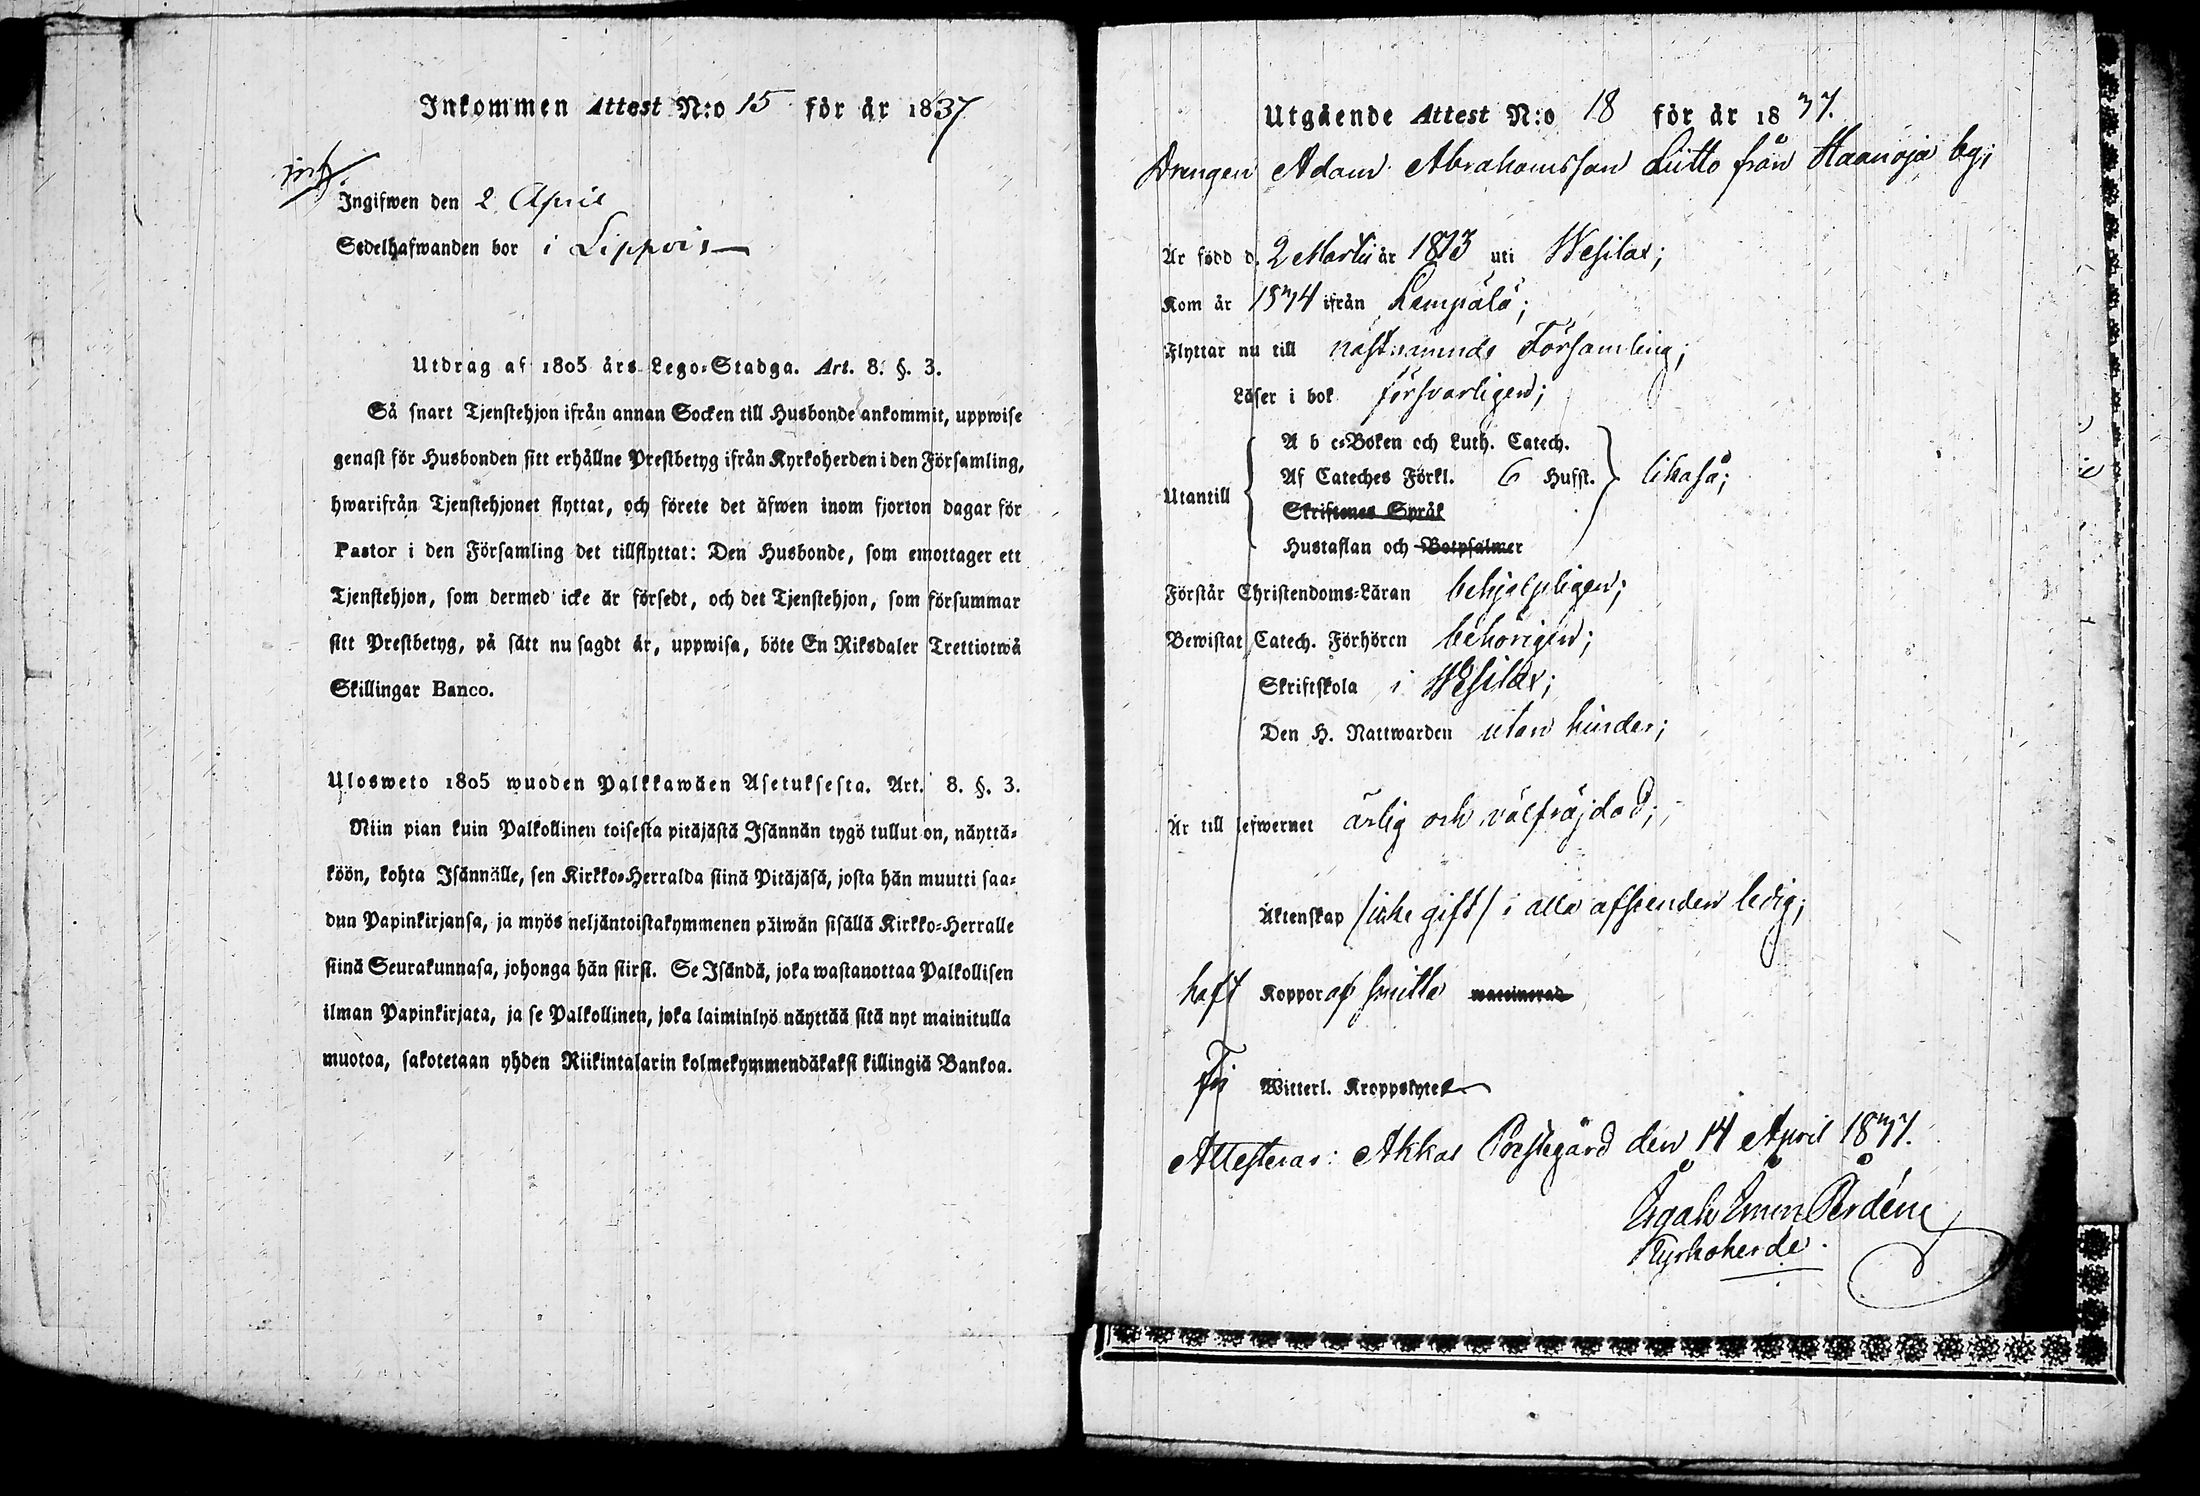 Inkommen Attest N:o 15 för år 1837
Ingifwen den 2 April
Sedelhafwanden bor i
Utdrag af 1805 års Lego-Stadga. Art. 8. §. 3.
Så snart Tjenstehjon ifrån annan Socken till Husbonde ankommit, uppwise
genast för Husbonden sitt erhållne Prestbetyg ifrån Kyrkoherden i den Församling,
hwarifrån Tjenstehjonet flyttat, och förete det äfwen inom fjorton dagar för
Pastor i den Församling det tillflyttat: Den Husbonde, som emottager ett
Tjenstehjon, som dermed icke är försedt, och det Tjenstehjon, som försummar
sitt Prestbetyg, på sätt nu sagdt är, uppwisa, böte En Riksdaler Trettiotwå
Skillingar Banco.
Ulosweto 1805 wuoden Palkkawäen Asetuksesta. Art. 8. §. 3.
Niin pian kuin Palkollinen toisesta pitäjästä Isännän tygö tullut on, näyttä-
köön, kohta Isännälle, sen Kirkko-Herralda siinä Pitäjäsä, josta hän muutti saa-
dun Papinkirjansa, ja myös neljäntoistakymmenen päiwän sisällä Kirkko-Herralle
siinä Seurakunnasa, johonga hän siirsi. Se Isändä, joka wastanottaa Palkollisen
ilman Papinkirjata, ja se Palkollinen, joka laiminlyö näyttää sitä nyt mainitulla
muotoa, sakotetaan yhden Riikintalarin kolmekymmendäkaksi killingiä Bankoa.
Utgående Attest N:o 18 för år 1837.
Drengen Adam Abrahamsson Litto från Haanoja by;
Är född d. 2 Martii år 1813 uti Wesilax;
Kom år 1834 ifrån Lempälä;
Flyttar nu till nästnämnde Församling;
Läser i bok försvarligen;
Utantill
A b c-Boken och Luth. Catech.
Af Cateches Förkl. 6 Hufst. likaså;
Skriftenes Språk
Hustaflan och Botpsalmer
Förstår Christendoms-Läran behjelpligen;
Bewistat Catech. Förhören behörigen;
Skriftskola i Wesilax;
Den H. Nattwarden utan hinder;
Är till lefwernet ärlig och välfräjdad;
Äktenskap /icke gift/ i alla afseenden ledig;
haft Koppor af smitta waccinerad
Fri Witterl. Kroppslytes
Attesteras: Akkas Prestegård den 14 April 1837.
Kyrkoherde.